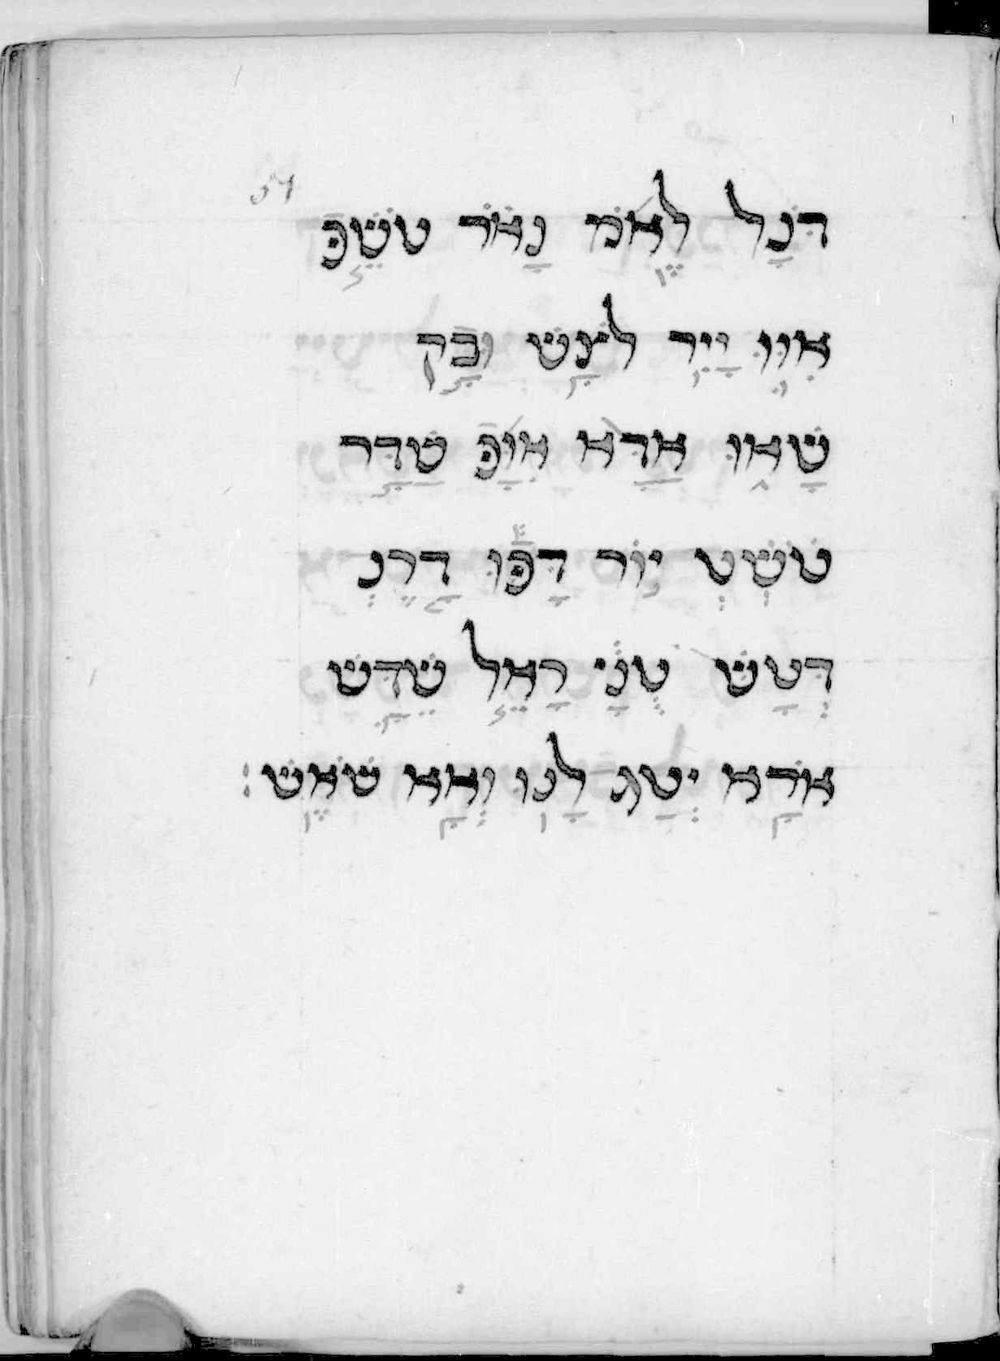 57
דנל לאמ נאר טשפ
אוו ייר לנש ובק
שאו אדא אופ שדר
טשט יור דפו דרנ
דטש טני ראל שדש
אדא יטג לנו ואא שאש: